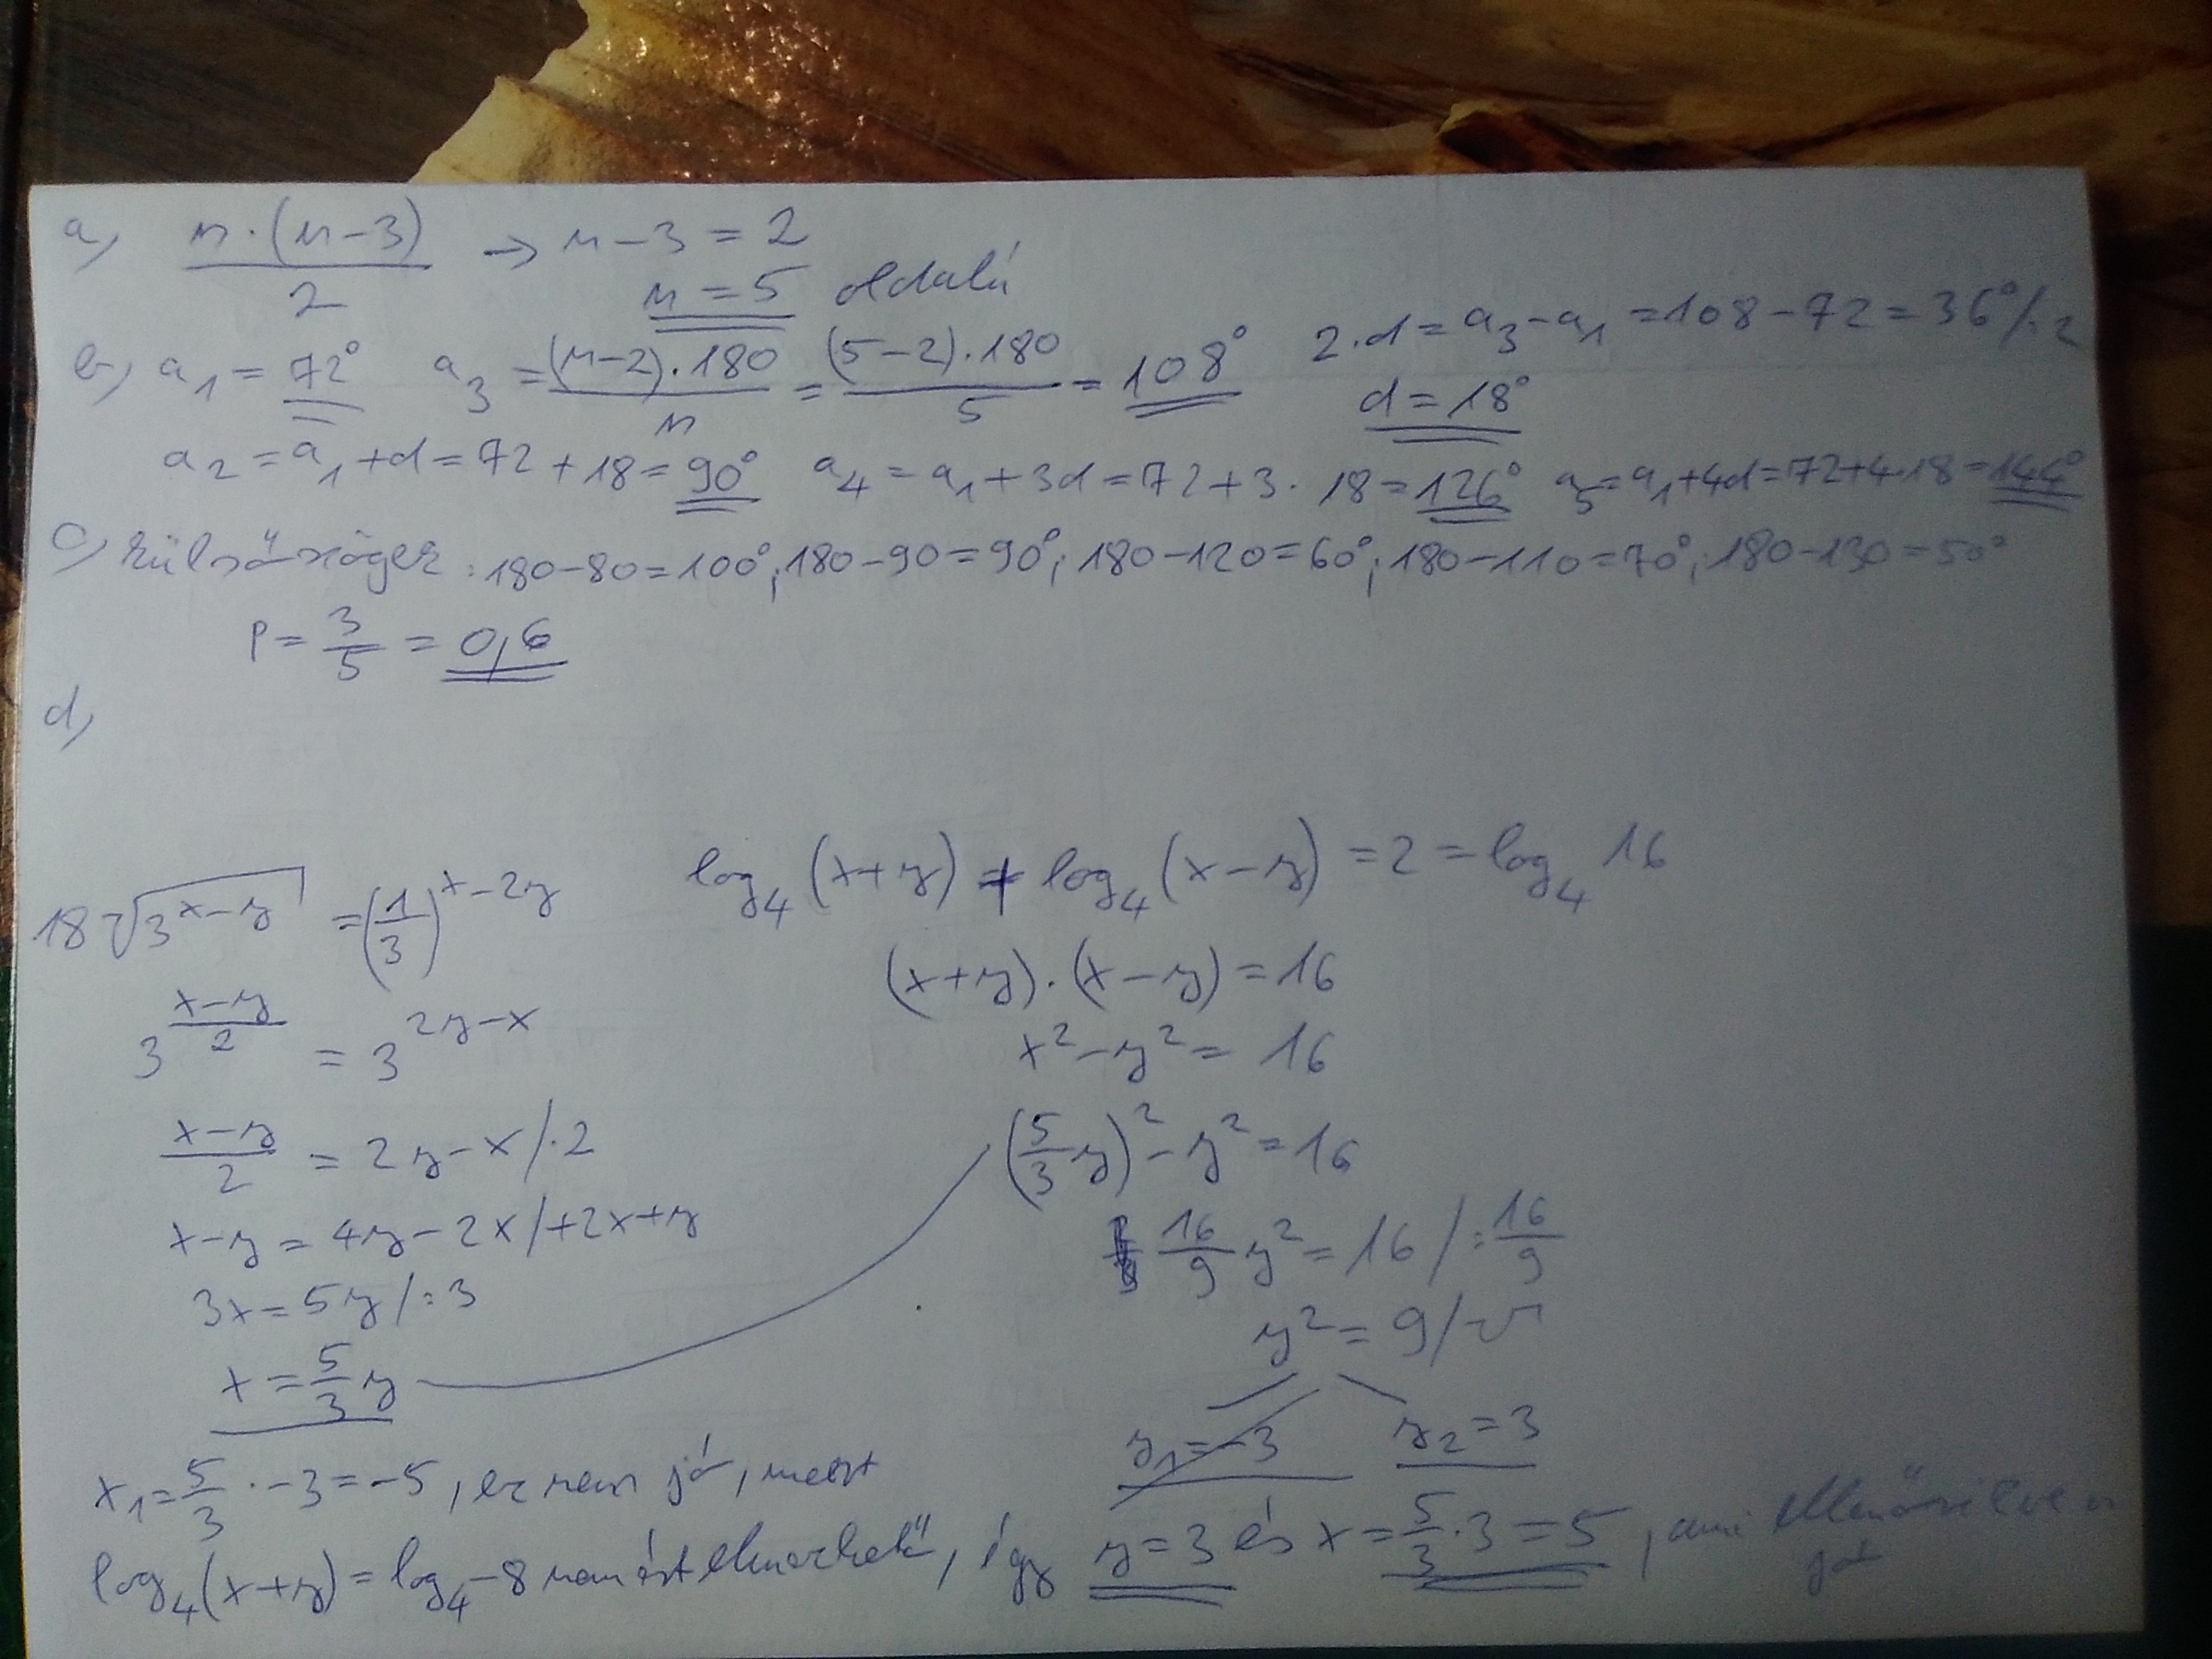 a) n·(n-3)/2 → n-3=2
n=5 oldalú
b) a₁=72° a₃=(n-2)·180/n=(5-2)·180/5=108° 2·d=a₃-a₁=108-72=36°/:2
d=18°
a₂=a₁+d=72+18=90° a₄=a₁+3d=72+3·18=126° a₅=a₁+4d=72+4·18=144°
c) külső szögek: 180-80=100°; 180-90=90°; 180-120=60°; 180-110=70°; 180-130=50°
P=3/5=0,6
d)
18 √(3^(x-y)) = (1/3)^(x-2y)
3^((x-y)/2) = 3^(2y-x)
(x-y)/2 = 2y-x/·2
x-y=4y-2x/+2x+y
3x=5y/:3
x=5/3 y
log₄(x+y)+log₄(x-y)=2=log₄ 16
(x+y)·(x-y)=16
x²-y²=16
(5/3 y)²-y²=16
16/9 y²=16/:16/9
y²=9/√
y₁=-3 y₂=3
x₁=5/3·-3=-5, ez nem jó, mert
log₄(x+y)=log₄-8 nem értelmezhető, így y=3 és x=5/3·3=5, ami ellenőrizve
jó